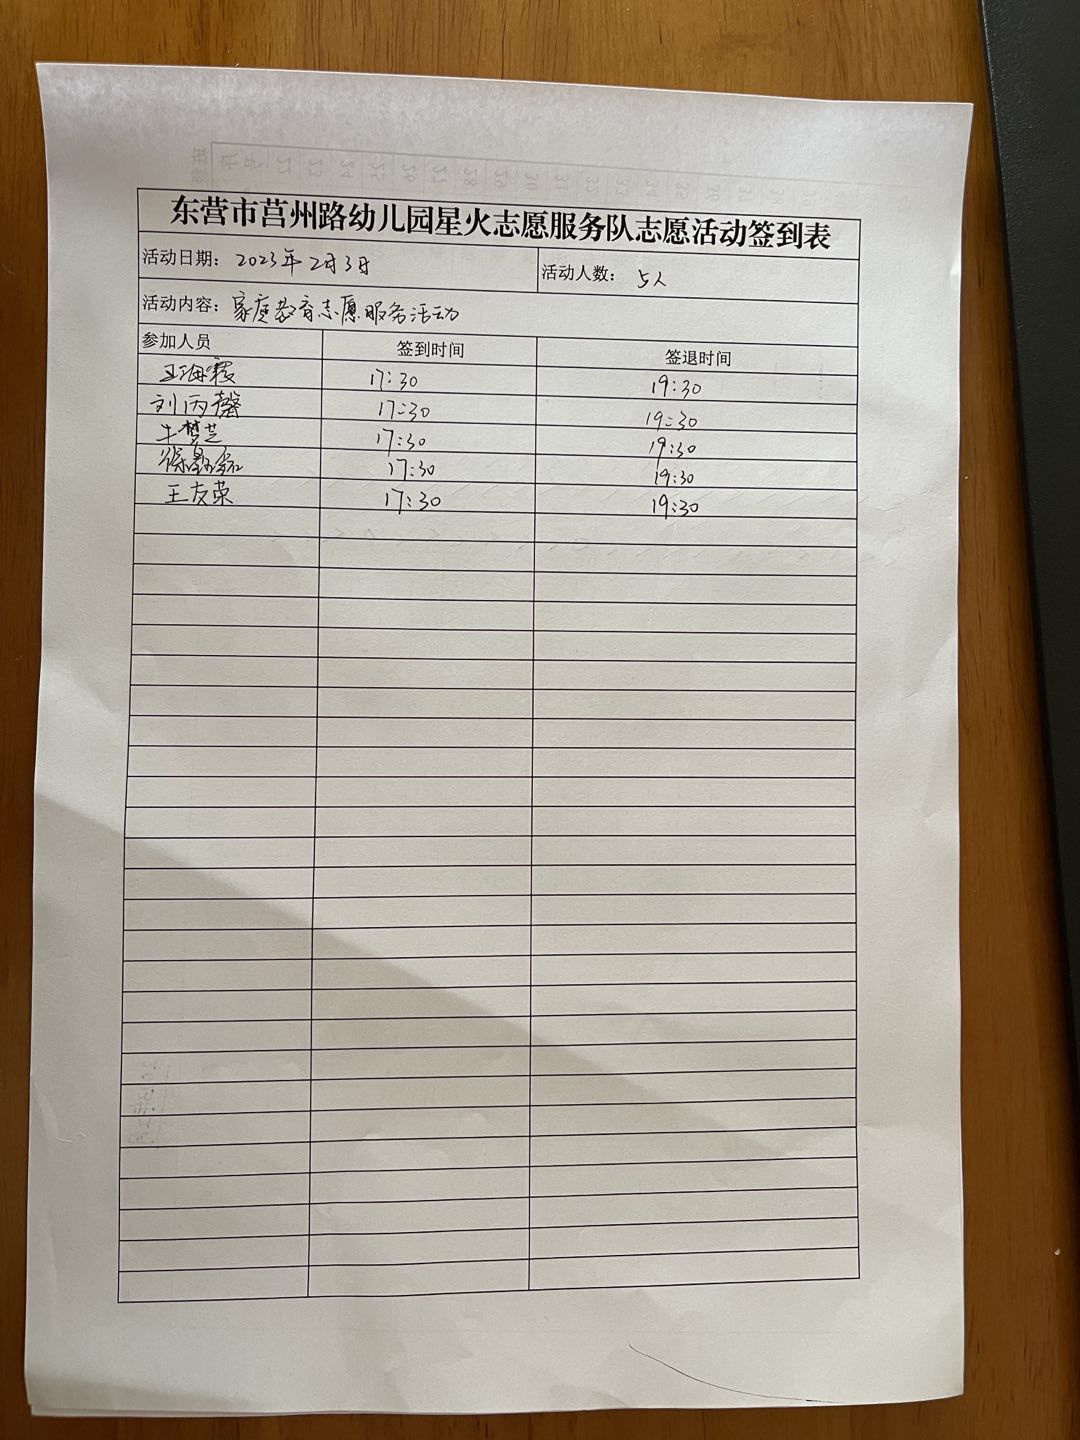 东营市莒州路幼儿园星火志愿服务队志愿活动签到表
活动日期：2023年2月3日 活动人数：5人
活动内容：家庭教育志愿服务活动
参加人员 签到时间 签退时间
王海霞 17:30 19:30
刘丙馨 17:30 19:30
17:30 19:30
17:30 19:30
王友荣 17:30 19:30